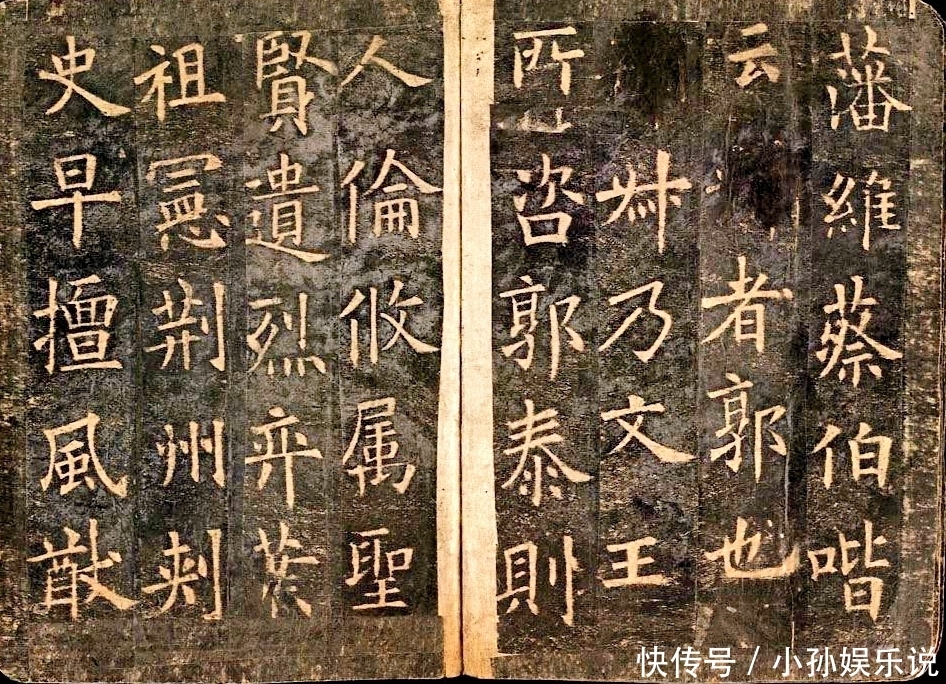 藩維蔡伯喈
云者郭也
叔乃文王
所咨郭泰則
人倫攸属聖
賢遺烈弈葉
祖憲荆州刾
史早擅風猷
快传号 / 小孙娱乐说